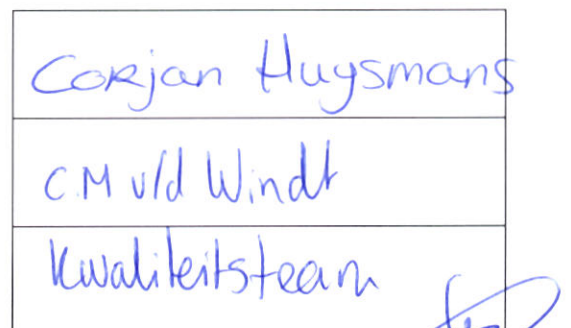 Corjan Huysmans
C.M v/d Windt
Kwaliteitsteam